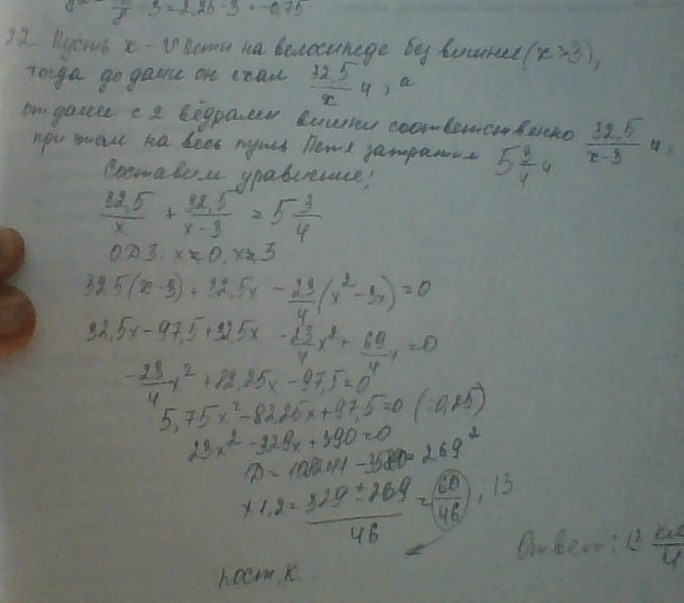 - 3 = 2,25 - 3 = -0,75
22. Пусть x - v Пети на велосипеде без вишни (x > 3),
тогда до дачи он ехал 32,5/x ч, а
от дачи с 2 вёдрами вишни соответственно 32,5/x-3 ч,
при этом на весь путь Петя затратил 5 3/4 ч
Составим уравнение:
32,5/x + 32,5/x-3 = 5 3/4
ОДЗ: x ≠ 0, x ≠ 3
32,5(x-3) + 32,5x - 23/4 (x² - 3x) = 0
32,5x - 97,5 + 32,5x - 23/4 x² + 69/4 x = 0
-23/4 x² + 82,25x - 97,5 = 0
5,75x² - 82,25x + 97,5 = 0 (:0,25)
23x² - 329x + 390 = 0
D = = 269²
x1,2 = 329 ± 269/46 = 60/46, 13
пост. к.
Ответ: 13 км/ч